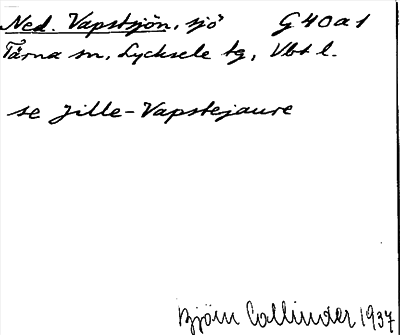 Ned. Vapstsjön, sjö G 40 a 1
Tärna sn, Lycksele tg, Vbt l.
se Jille-Vapstejaure
Björn Collinder 1937